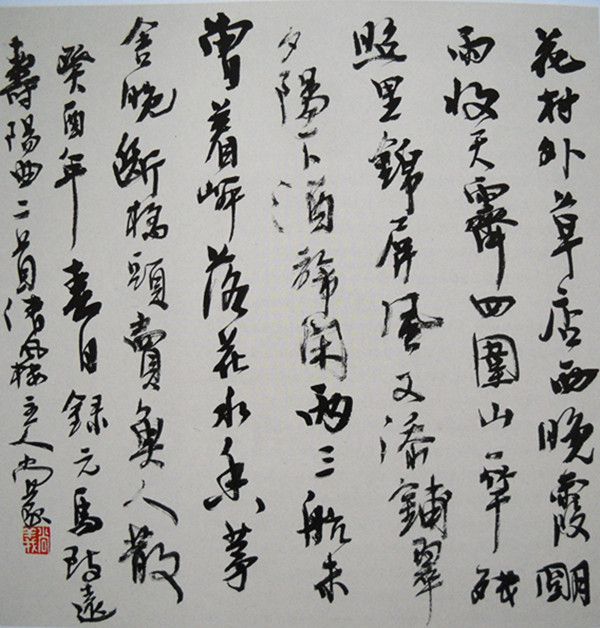 花村外草店西晚霞明
雨收天霽四圍山一竿殘
照里錦屏風又添鋪翠
夕陽下酒旆閑兩三航未
曾着岸落花水香茅
舍晚斷橋頭賣魚人散
癸酉年春日錄元馬致遠
壽陽曲二首風樓主人尚義
尚義